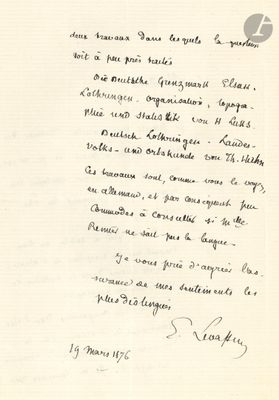 deux travaux dans lesquels la question
soit à peu près traitée
Die Deutsche Grenzmark Elsass
Lothringen - organisation, topogra-
phie und statistik von H
Deutsch Lothringen - Landes-
Volks - und ortskunde von Th.
Ces travaux sont, comme vous le voyez,
en allemand, et par conséquent peu
commodes à consulter si Mr de
ne sait pas la langue -
Je vous prie d'agréer l'as-
surance de mes sentiments les
plus distingués
E. Levasseur
19 mars 1876